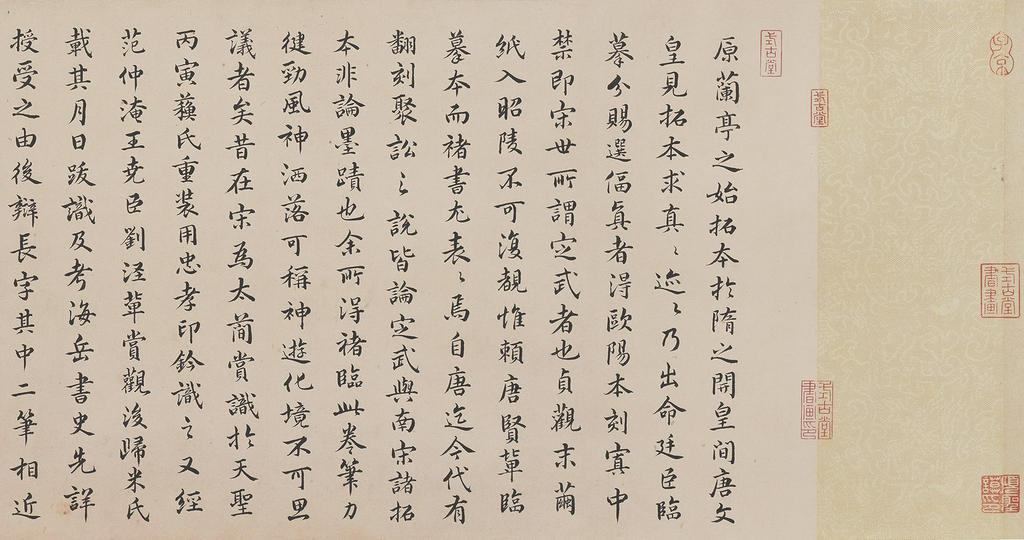 原蘭亭之始拓本於隋之開皇間唐文
皇見拓本求真〻迹〻乃出命廷臣臨
摹分賜選偪真者得歐陽本刻寘中
禁即宋世所謂定武者也貞觀末繭
紙入昭陵不可復覩惟賴唐賢輩臨
摹本而褚書尤表〻焉自唐迄今代有
翻刻聚訟之說皆論定武與南宋諸拓
本非論墨蹟也余所得褚臨此卷筆力
健勁風神洒落可稱神遊化境不可思
議者矣昔在宋為太簡賞識於天聖
丙寅蘇氏重裝用忠孝印鈐識之又經
范仲淹王堯臣劉涇輩賞觀後歸米氏
載其月日跋識及考海岳書史先詳
授受之由後辯長字其中二筆相近
式古堂
式古堂
式古堂書畫印
式古堂書畫